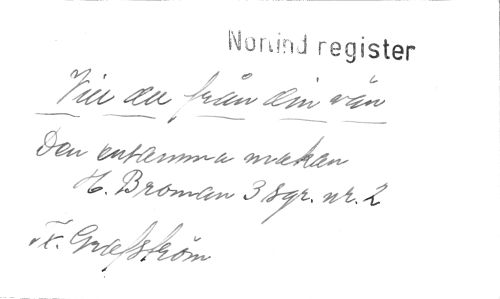 Nonind register
Vill du från din vän
Den ensamma makan
H. Broman 3 sgr. nr. 2
K. Grafström